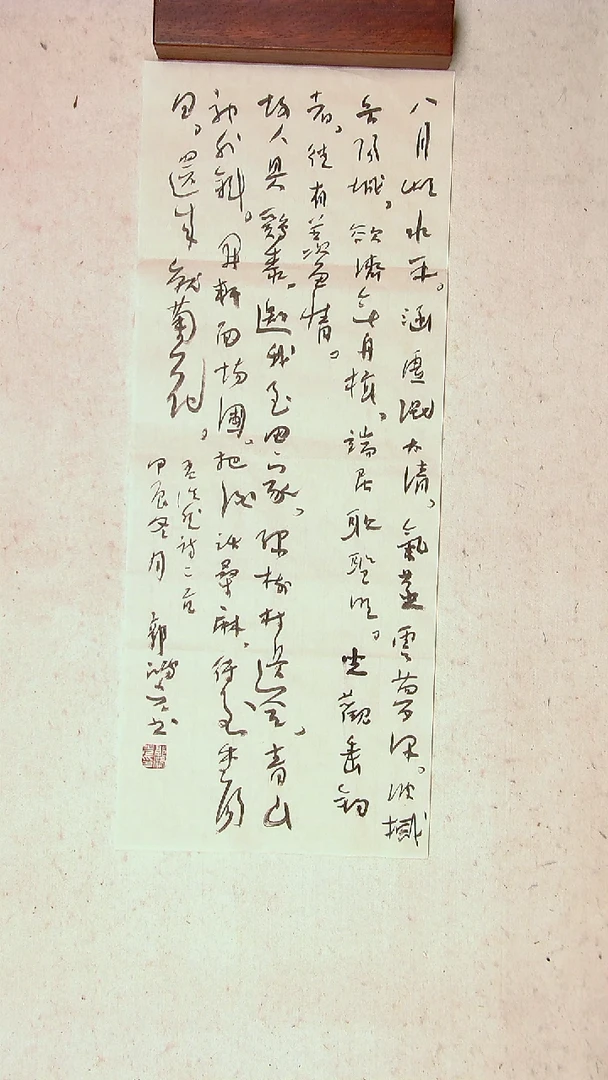 八月湖水平。涵虛混太清、氣蒸雲夢澤。波撼
岳陽城。欲濟無舟楫。端居恥聖明。坐觀垂釣
者。徒有羨魚情。
故人具鷄黍。邀我至田家。綠樹村邊合。青山
郭外斜。開軒面場圃。把酒話桑麻。待到重陽
日。還來就菊花。
孟浩然詩二首
甲辰冬月 郭